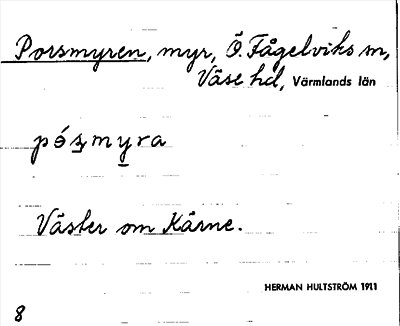 Porsmyren, myr, Ö. Fågelviks sn,
Väse hd, Värmlands län
pósmyra
Väster om Kärne.
HERMAN HULTSTRÖM 1911
8